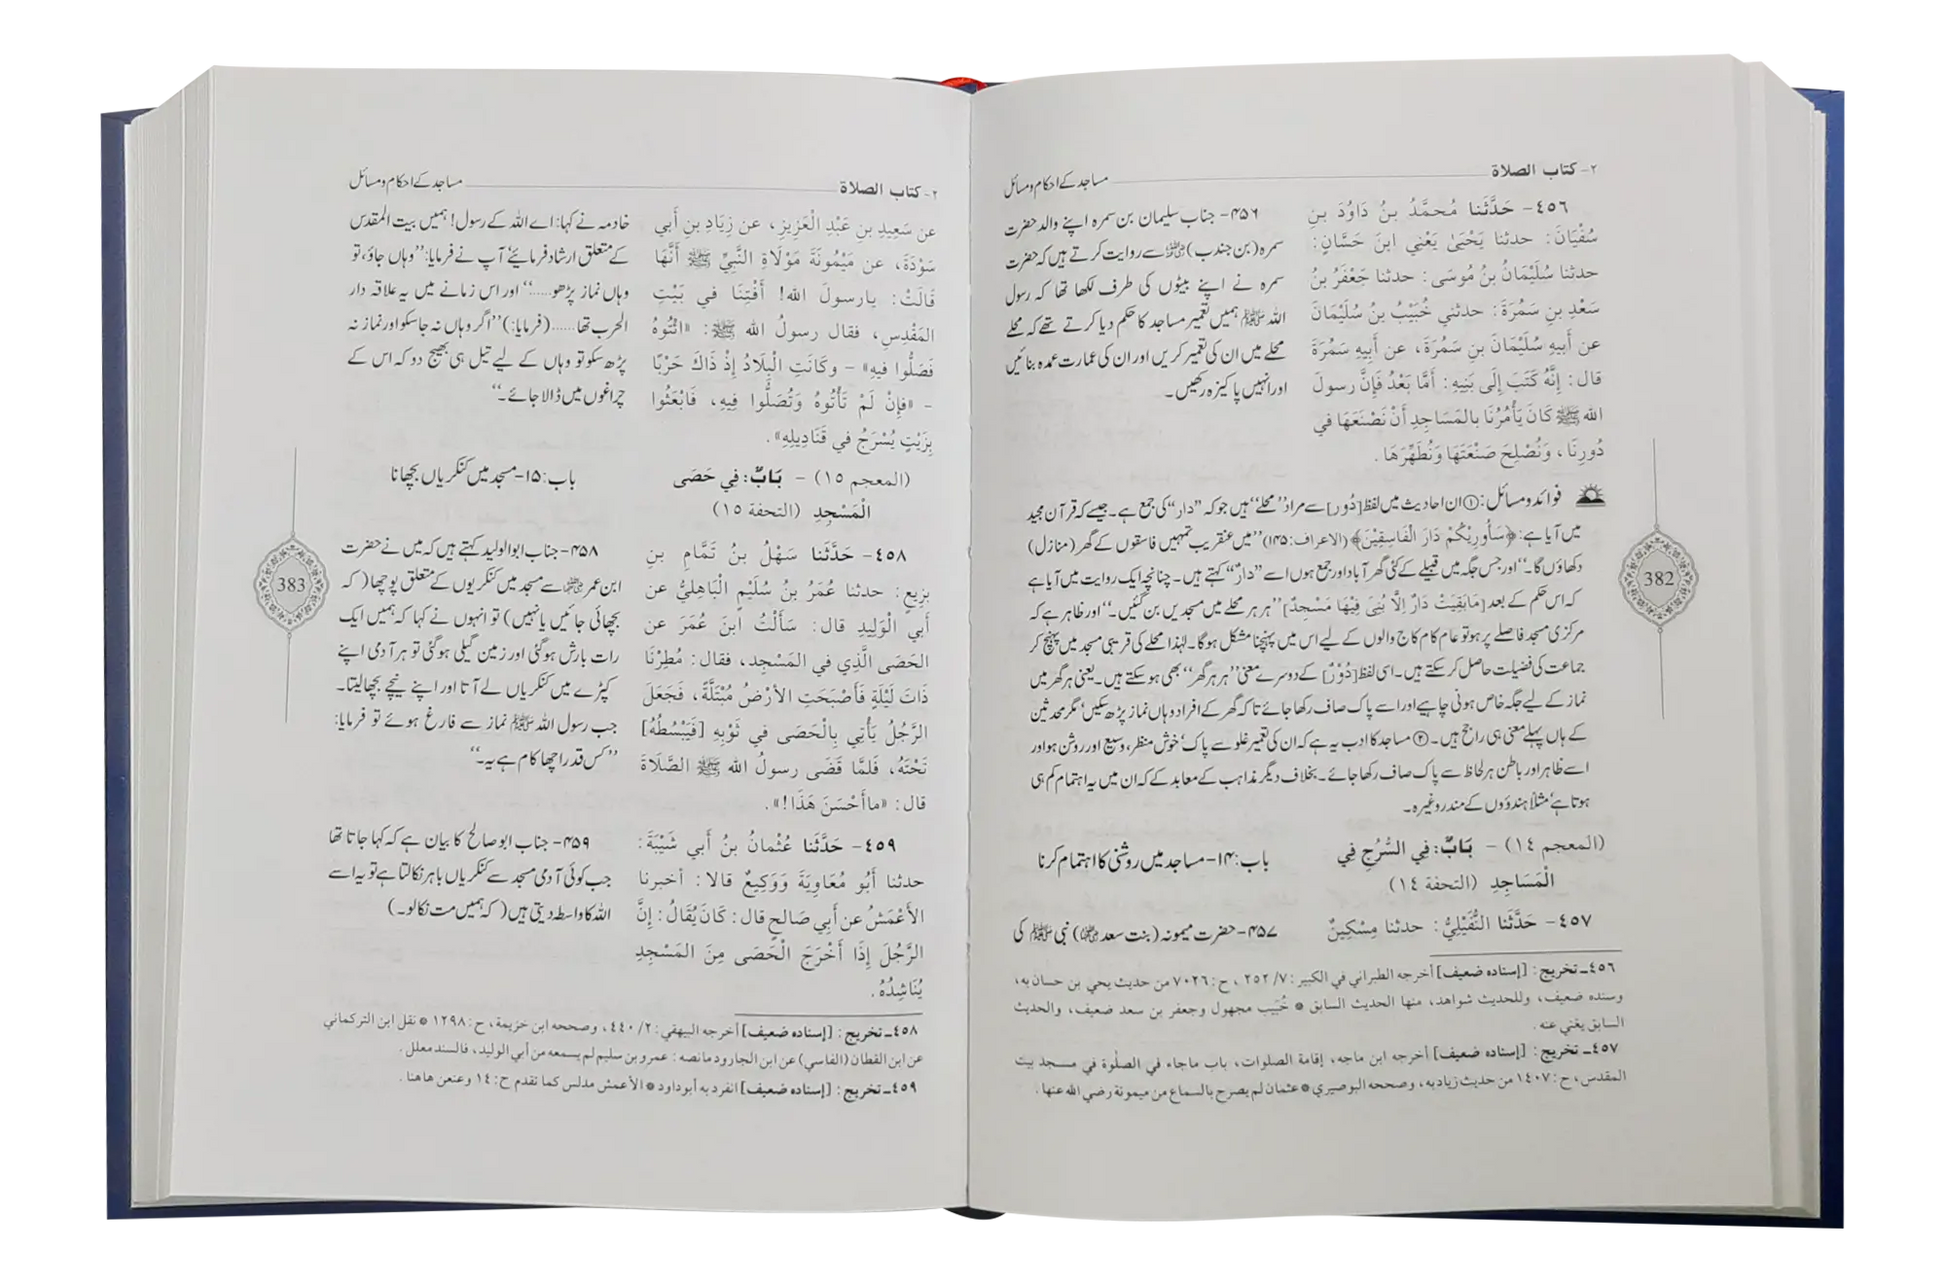 ٢- كتاب الصلاة
مساجد کے احکام و مسائل
٤٥٦- حَدَّثَنا مُحمَّدُ بنُ دَاوُدَ بنِ
سُفْيَانَ: حدثنا يَحْيَىٰ يَعْني ابنَ حَسَّانٍ:
حدثنا سُلَيْمَانُ بنُ مُوسَى: حدثنا جَعْفَرُ بنُ
سَعْدِ بنِ سَمُرَةَ: حدثني خُبَيْبُ بنُ سُلَيْمَانَ
عن أبِيهِ سُلَيْمَانَ بنِ سَمُرَةَ، عن أبِيهِ سَمُرَةَ
قال: إنَّهُ كَتَبَ إلَى بَنِيهِ: أمَّا بَعْدُ فَإنَّ رسولَ
الله ﷺ كَانَ يَأْمُرُنَا بالمَسَاجِدِ أنْ نَصْنَعَهَا في
دُورِنَا، وَنُصْلِحَ صَنْعَتَهَا وَنُطَهِّرَهَا.
۴۵۶- جناب سلیمان بن سمرہ اپنے والد حضرت
سمرہ (بن جندب) ؓ سے روایت کرتے ہیں کہ حضرت
سمرہ نے اپنے بیٹوں کی طرف لکھا تھا کہ رسول
اللہ ﷺ ہمیں تعمیر مساجد کا حکم دیا کرتے تھے کہ محلے
محلے میں ان کی تعمیر کریں اور ان کی عمارت عمدہ بنائیں
اور انہیں پاکیزہ رکھیں۔
فوائد و مسائل: ① ان احادیث میں لفظ [دُور] سے مراد ’’محلے‘‘ ہیں جو کہ ’’دار‘‘ کی جمع ہے۔ جیسے کہ قرآن مجید
میں آیا ہے: ﴿سَأُورِيكُمْ دَارَ الْفَاسِقِينَ﴾ (الاعراف:۱۴۵) ’’میں عنقریب تمہیں فاسقوں کے گھر (منازل)
دکھاؤں گا۔‘‘ اور جس جگہ میں قبیلے کے کئی گھر آباد اور جمع ہوں اسے ’’دارٌ‘‘ کہتے ہیں۔ چنانچہ ایک روایت میں آیا ہے
کہ اس حکم کے بعد [مَابَقِيَتْ دَارٌ اِلَّا بُنِیَ فِيْهَا مَسْجِدٌ] ’’ہر ہر محلے میں مسجدیں بن گئیں۔‘‘ اور ظاہر ہے کہ
مرکزی مسجد فاصلے پر ہو تو عام کام کاج والوں کے لیے اس میں پہنچنا مشکل ہوگا۔ لہٰذا محلے کی قریبی مسجد میں پہنچ کر
جماعت کی فضیلت حاصل کر سکتے ہیں۔ اسی لفظ [دُوْرٌ] کے دوسرے معنی ’’ہر ہر گھر‘‘ بھی ہو سکتے ہیں۔ یعنی ہر گھر میں
نماز کے لیے جگہ خاص ہونی چاہیے اور اسے پاک صاف رکھا جائے تاکہ گھر کے افراد وہاں نماز پڑھ سکیں‘ مگر محدثین
کے ہاں پہلے معنی ہی راجح ہیں۔ ② مساجد کا ادب یہ ہے کہ ان کی تعمیر غلو سے پاک‘ خوش منظر، وسیع اور روشن ہو اور
اسے ظاہر اور باطن ہر لحاظ سے پاک صاف رکھا جائے۔ بخلاف دیگر مذاہب کے معابد کے کہ ان میں یہ اہتمام کم ہی
ہوتا ہے‘ مثلاً ہندوؤں کے مندر وغیرہ۔
(المعجم ١٤) - بَابٌ: فِي السُّرُجِ فِي
الْمَسَاجِدِ (التحفة ١٤)
باب:۱۴- مساجد میں روشنی کا اہتمام کرنا
٤٥٧- حَدَّثَنا النُّفَيْلِيُّ: حدثنا مِسْكِينٌ
۴۵۷- حضرت میمونہ (بنت سعد ؓ) نبی ﷺ کی
٤٥٦ـ تخريج: [إسناده ضعيف] أخرجه الطبراني في الكبير: ٧/ ٢٥٢، ح: ٧٠٢٦ من حديث يحيى بن حسان به،
وسنده ضعيف، وللحديث شواهد، منها الحديث السابق * خُبَيب مجهول وجعفر بن سعد ضعيف، والحديث
السابق يغني عنه.
٤٥٧ـ تخريج: [إسناده ضعيف] أخرجه ابن ماجه، إقامة الصلوات، باب ماجاء في الصلوة في مسجد بيت
المقدس، ح: ١٤٠٧ من حديث زياد به، وصححه البوصيري * عثمان لم يصرح بالسماع من ميمونة رضي الله عنها.
382
٢- كتاب الصلاة
مساجد کے احکام و مسائل
عن سَعِيدِ بنِ عَبْدِ الْعَزِيزِ، عن زِيَادِ بنِ أبي
سَوْدَةَ، عن مَيْمُونَةَ مَوْلَاةِ النَّبيِّ ﷺ أنَّهَا
قَالَتْ: يارسولَ الله! أَفْتِنَا في بَيْتِ
المَقْدِسِ، فقال رسولُ الله ﷺ: «ائْتُوهُ
فَصَلُّوا فيهِ» - وكَانَتِ الْبِلَادُ إذْ ذَاكَ حَرْبًا
- «فإنْ لَمْ تَأْتُوهُ وَتُصَلُّوا فِيهِ، فَابْعَثُوا
بِزَيْتٍ يُسْرَجُ في قَنَادِيلِهِ».
خادمہ نے کہا: اے اللہ کے رسول! ہمیں بیت المقدس
کے متعلق ارشاد فرمائیے‘ آپ نے فرمایا: ’’وہاں جاؤ، تو
وہاں نماز پڑھو.....‘‘ اور اس زمانے میں یہ علاقہ دار
الحرب تھا...... (فرمایا:) ’’اگر وہاں نہ جا سکو اور نماز نہ
پڑھ سکو تو وہاں کے لیے تیل ہی بھیج دو کہ اس کے
چراغوں میں ڈالا جائے۔‘‘
(المعجم ١٥) - بَابٌ: فِي حَصَى
الْمَسْجِدِ (التحفة ١٥)
باب:۱۵- مسجد میں کنکریاں بچھانا
٤٥٨- حَدَّثَنا سَهْلُ بنُ تَمَّامِ بنِ
بزِيعٍ: حدثنا عُمَرُ بنُ سُلَيْمٍ الْبَاهِليُّ عن
أبي الْوَلِيدِ قال: سَأَلْتُ ابنَ عُمَرَ عن
الحَصَى الَّذِي في المَسْجِدِ، فقال: مُطِرْنَا
ذَاتَ لَيْلَةٍ فَأَصْبَحَتِ الأرْضُ مُبْتَلَّةً، فَجَعَلَ
الرَّجُلُ يَأْتِي بِالْحَصَى في ثَوْبِهِ [فَيَبْسُطُهُ]
تَحْتَهُ، فَلمَّا قَضَى رسولُ الله ﷺ الصَّلَاةَ
قال: «ماأَحْسَنَ هَذَا!».
۴۵۸- جناب ابوالولید کہتے ہیں کہ میں نے حضرت
ابن عمر ؓ سے مسجد میں کنکریوں کے متعلق پوچھا (کہ
بچھائی جائیں یا نہیں) تو انہوں نے کہا کہ ہمیں ایک
رات بارش ہوگئی اور زمین گیلی ہوگئی تو ہر آدمی اپنے
کپڑے میں کنکریاں لے آتا اور اپنے نیچے بچھا لیتا۔
جب رسول اللہ ﷺ نماز سے فارغ ہوئے تو فرمایا:
’’کس قدر اچھا کام ہے یہ۔‘‘
٤٥٩- حَدَّثَنا عُثْمانُ بنُ أبي شَيْبَةَ:
حدثنا أبُو مُعَاوِيَةَ وَوَكِيعٌ قالا: أخبرنا
الأعْمَشُ عن أبِي صَالحٍ قال: كَانَ يُقَالُ: إنَّ
الرَّجُلَ إذَا أخْرَجَ الْحَصَى مِنَ المَسْجِدِ
يُنَاشِدُهُ.
۴۵۹- جناب ابوصالح کا بیان ہے کہ کہا جاتا تھا
جب کوئی آدمی مسجد سے کنکریاں باہر نکالتا ہے تو یہ اسے
اللہ کا واسطہ دیتی ہیں (کہ ہمیں مت نکالو۔)
٤٥٨ـ تخريج: [إسناده ضعيف] أخرجه البيهقي: ٢/ ٤٤٠، وصححه ابن خزيمة، ح: ١٢٩٨ * نقل ابن التركماني
عن ابن القطان (الفاسي) عن ابن الجارود مانصه: عمرو بن سليم لم يسمعه من أبي الوليد، فالسند معلل.
٤٥٩ـ تخريج: [إسناده ضعيف] انفرد به أبوداود * الأعمش مدلس كما تقدم ح: ١٤ وعنعن هاهنا.
383